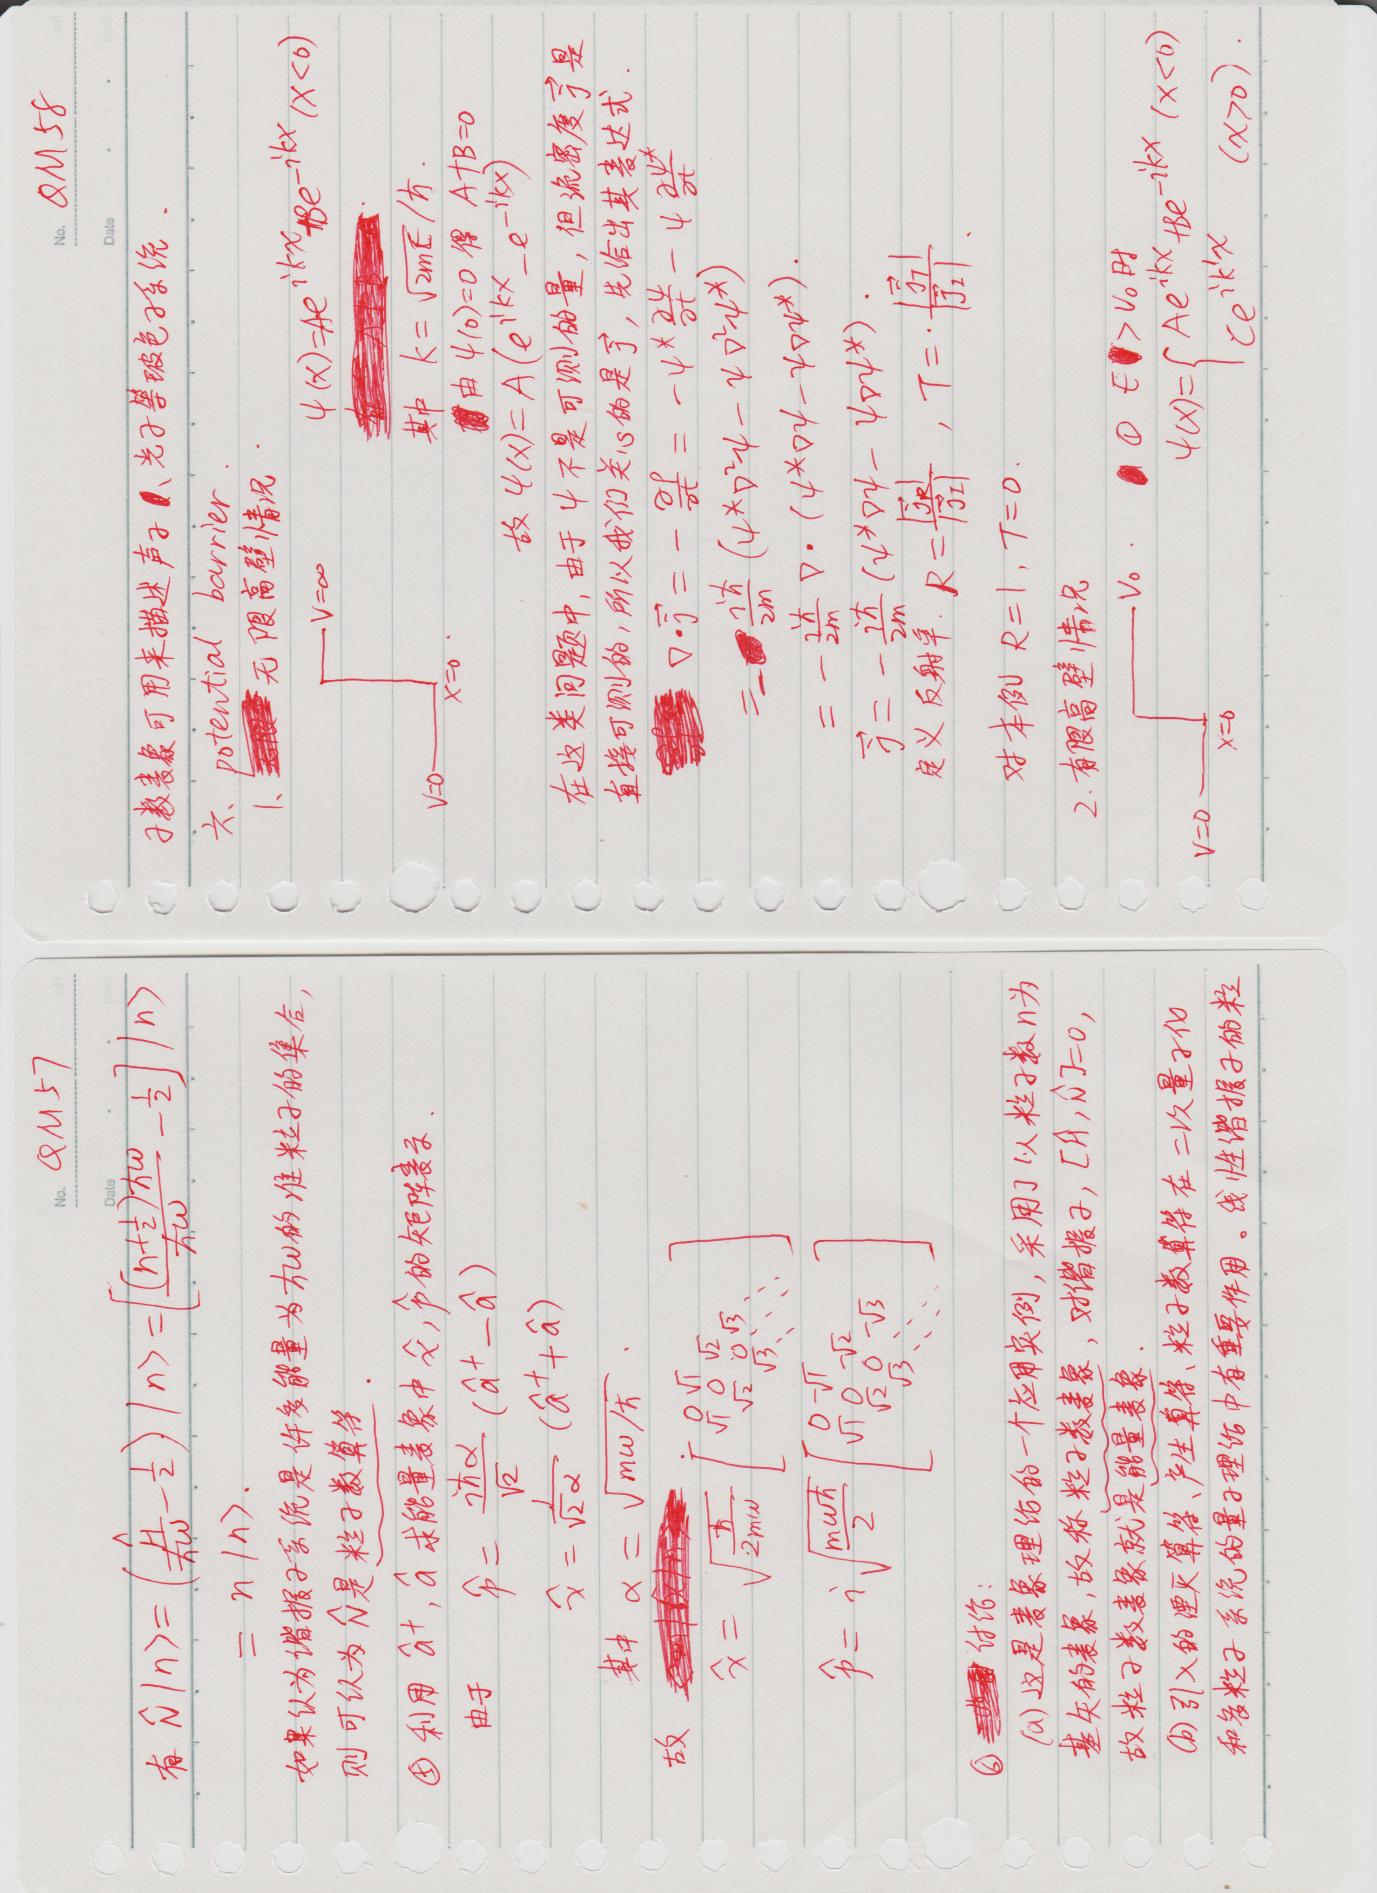 No. QM57
Date
有 N̂|n⟩=(Ĥ/ħω - 1/2)|n⟩=[(n+1/2)ħω/ħω - 1/2]|n⟩
= n|n⟩.
如果认为谐振子系统是许多能量为ħω的准粒子的集合,
则可认为N̂是粒子数算符.
⑤ 利用 â⁺, â 求能量表象中 x̂, p̂ 的矩阵表示.
由于 p̂ = iħα/√2 (â⁺ - â)
x̂ = 1/√2α (â⁺ + â)
其中 α = √mω/ħ .
故
x̂ = √ħ/2mω [
0 √1
√1 0 √2
√2 0 √3
√3 ⋱ ⋱
]
p̂ = i√mωħ/2 [
0 -√1
√1 0 -√2
√2 0 -√3
√3 ⋱ ⋱
]
⑥ 讨论:
(a) 这是表象理论的一个应用实例, 采用了以粒子数n为
基矢的表象, 故称粒子数表象, 对谐振子, [Ĥ, N̂]=0,
故粒子数表象就是能量表象.
(b) 引入的湮灭算符、产生算符、粒子数算符在二次量子化
和多粒子系统的量子理论中有重要作用。线性谐振子的粒
No. QM58
Date
子数表象可用来描述声子、光子等玻色子系统.
六、potential barrier.
1. 无限高壁情况
V=∞
V=0
x=0.
ψ(x)=Ae^{ikx}+Be^{-ikx} (x<0)
其中 k = √2mE/ħ.
由 ψ(0)=0 得 A+B=0
故 ψ(x)= A(e^{ikx} - e^{-ikx})
在这类问题中, 由于ψ不是可测的量, 但流密度j⃗是
直接可测的, 所以我们关心的是j⃗, 先给出其表达式.
∇·j⃗ = - ∂ρ/∂t = -ψ* ∂ψ/∂t - ψ ∂ψ*/∂t
= - iħ/2m (ψ*∇²ψ - ψ∇²ψ*)
= - iħ/2m ∇·(ψ*∇ψ - ψ∇ψ*).
j⃗ = - iħ/2m (ψ*∇ψ - ψ∇ψ*).
定义反射率. R = |j⃗_R|/|j⃗_I| , T = |j⃗_T|/|j⃗_I| .
对本例 R=1, T=0.
2. 有限高壁情况
V₀
V=0
x=0
① E>V₀时
ψ(x)={ Ae^{ikx}+Be^{-ikx} (x<0)
Ce^{ik'x} (x>0).